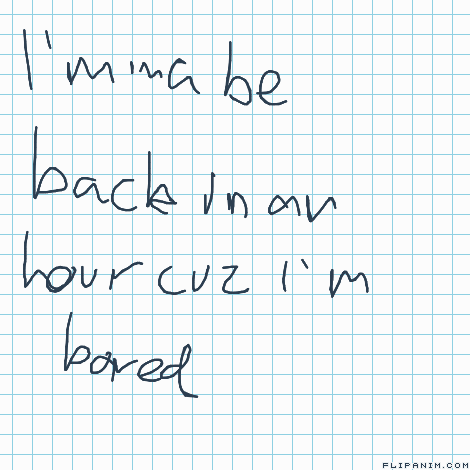 I'mima be
back in an
hour cuz i'm
bored
FLIPANIM.COM